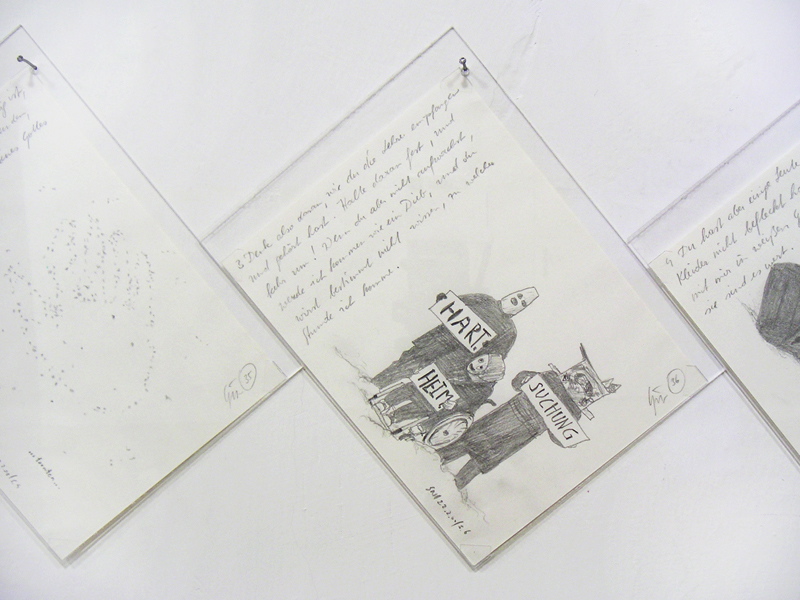 ig ist,
nes Gottes
35
3 Denke also daran, wie du die Lehre empfangen
und gehört hast. Halte daran fest, und
kehr um! Wenn du aber nicht aufwachst,
werde ich kommen wie ein Dieb, und du
wirst bestimmt nicht wissen, zu welcher
Stunde ich komme.
HART.
HEIM.
SUCHUNG
36
4 Du hast aber einige Leute
Kleider nicht befleckt ha
mit mir in weißen G
sie sind es wert.